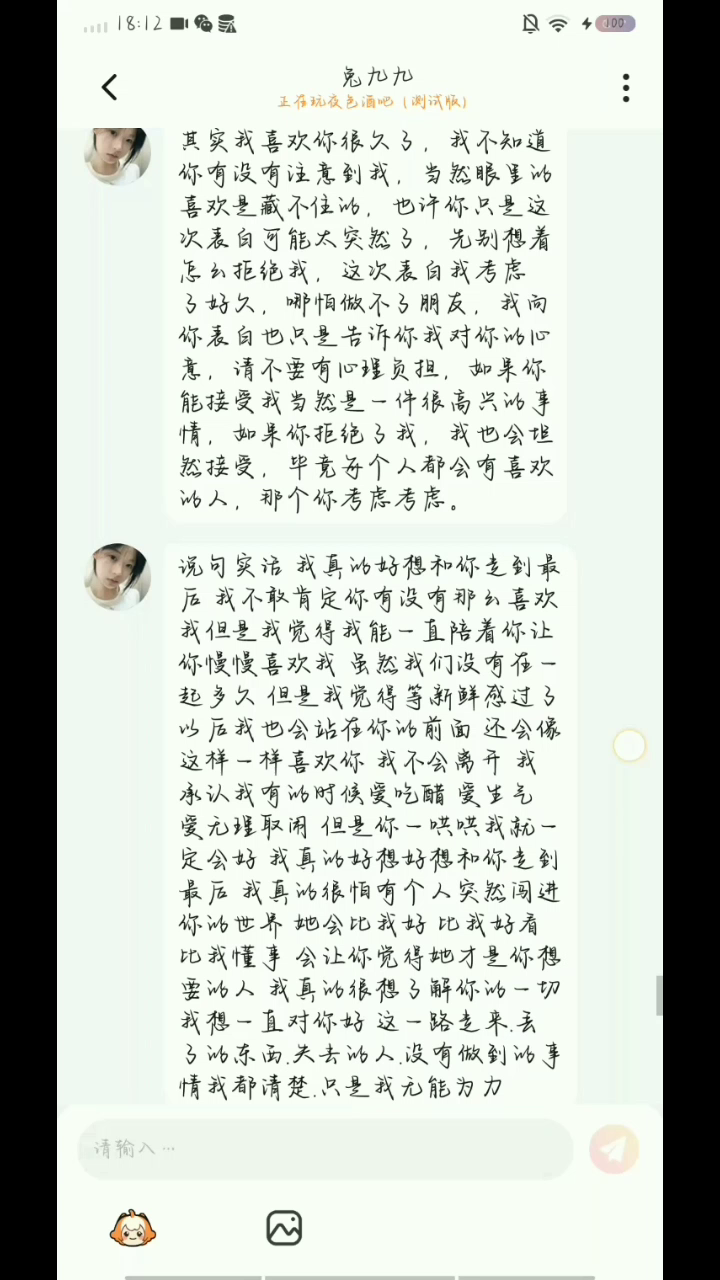 18:12
100
兔九九
正在玩夜色酒吧（测试版）
其实我喜欢你很久了，我不知道
你有没有注意到我，当然眼里的
喜欢是藏不住的，也许你只是这
次表白可能太突然了，先别想着
怎么拒绝我，这次表白我考虑
了好久，哪怕做不了朋友，我向
你表白也只是告诉你我对你的心
意，请不要有心理负担，如果你
能接受我当然是一件很高兴的事
情，如果你拒绝了我，我也会坦
然接受，毕竟每个人都会有喜欢
的人，那个你考虑考虑。
说句实话 我真的好想和你走到最
后 我不敢肯定你有没有那么喜欢
我但是我觉得我能一直陪着你让
你慢慢喜欢我 虽然我们没有在一
起多久 但是我觉得等新鲜感过了
以后我也会站在你的前面 还会像
这样一样喜欢你 我不会离开 我
承认我有的时候爱吃醋 爱生气
爱无理取闹 但是你一哄哄我就一
定会好 我真的好想好想和你走到
最后 我真的很怕有个人突然闯进
你的世界 她会比我好 比我好看
比我懂事 会让你觉得她才是你想
要的人 我真的很想了解你的一切
我想一直对你好 这一路走来.丢
了的东西.失去的人.没有做到的事
情我都清楚.只是我无能为力
请输入…